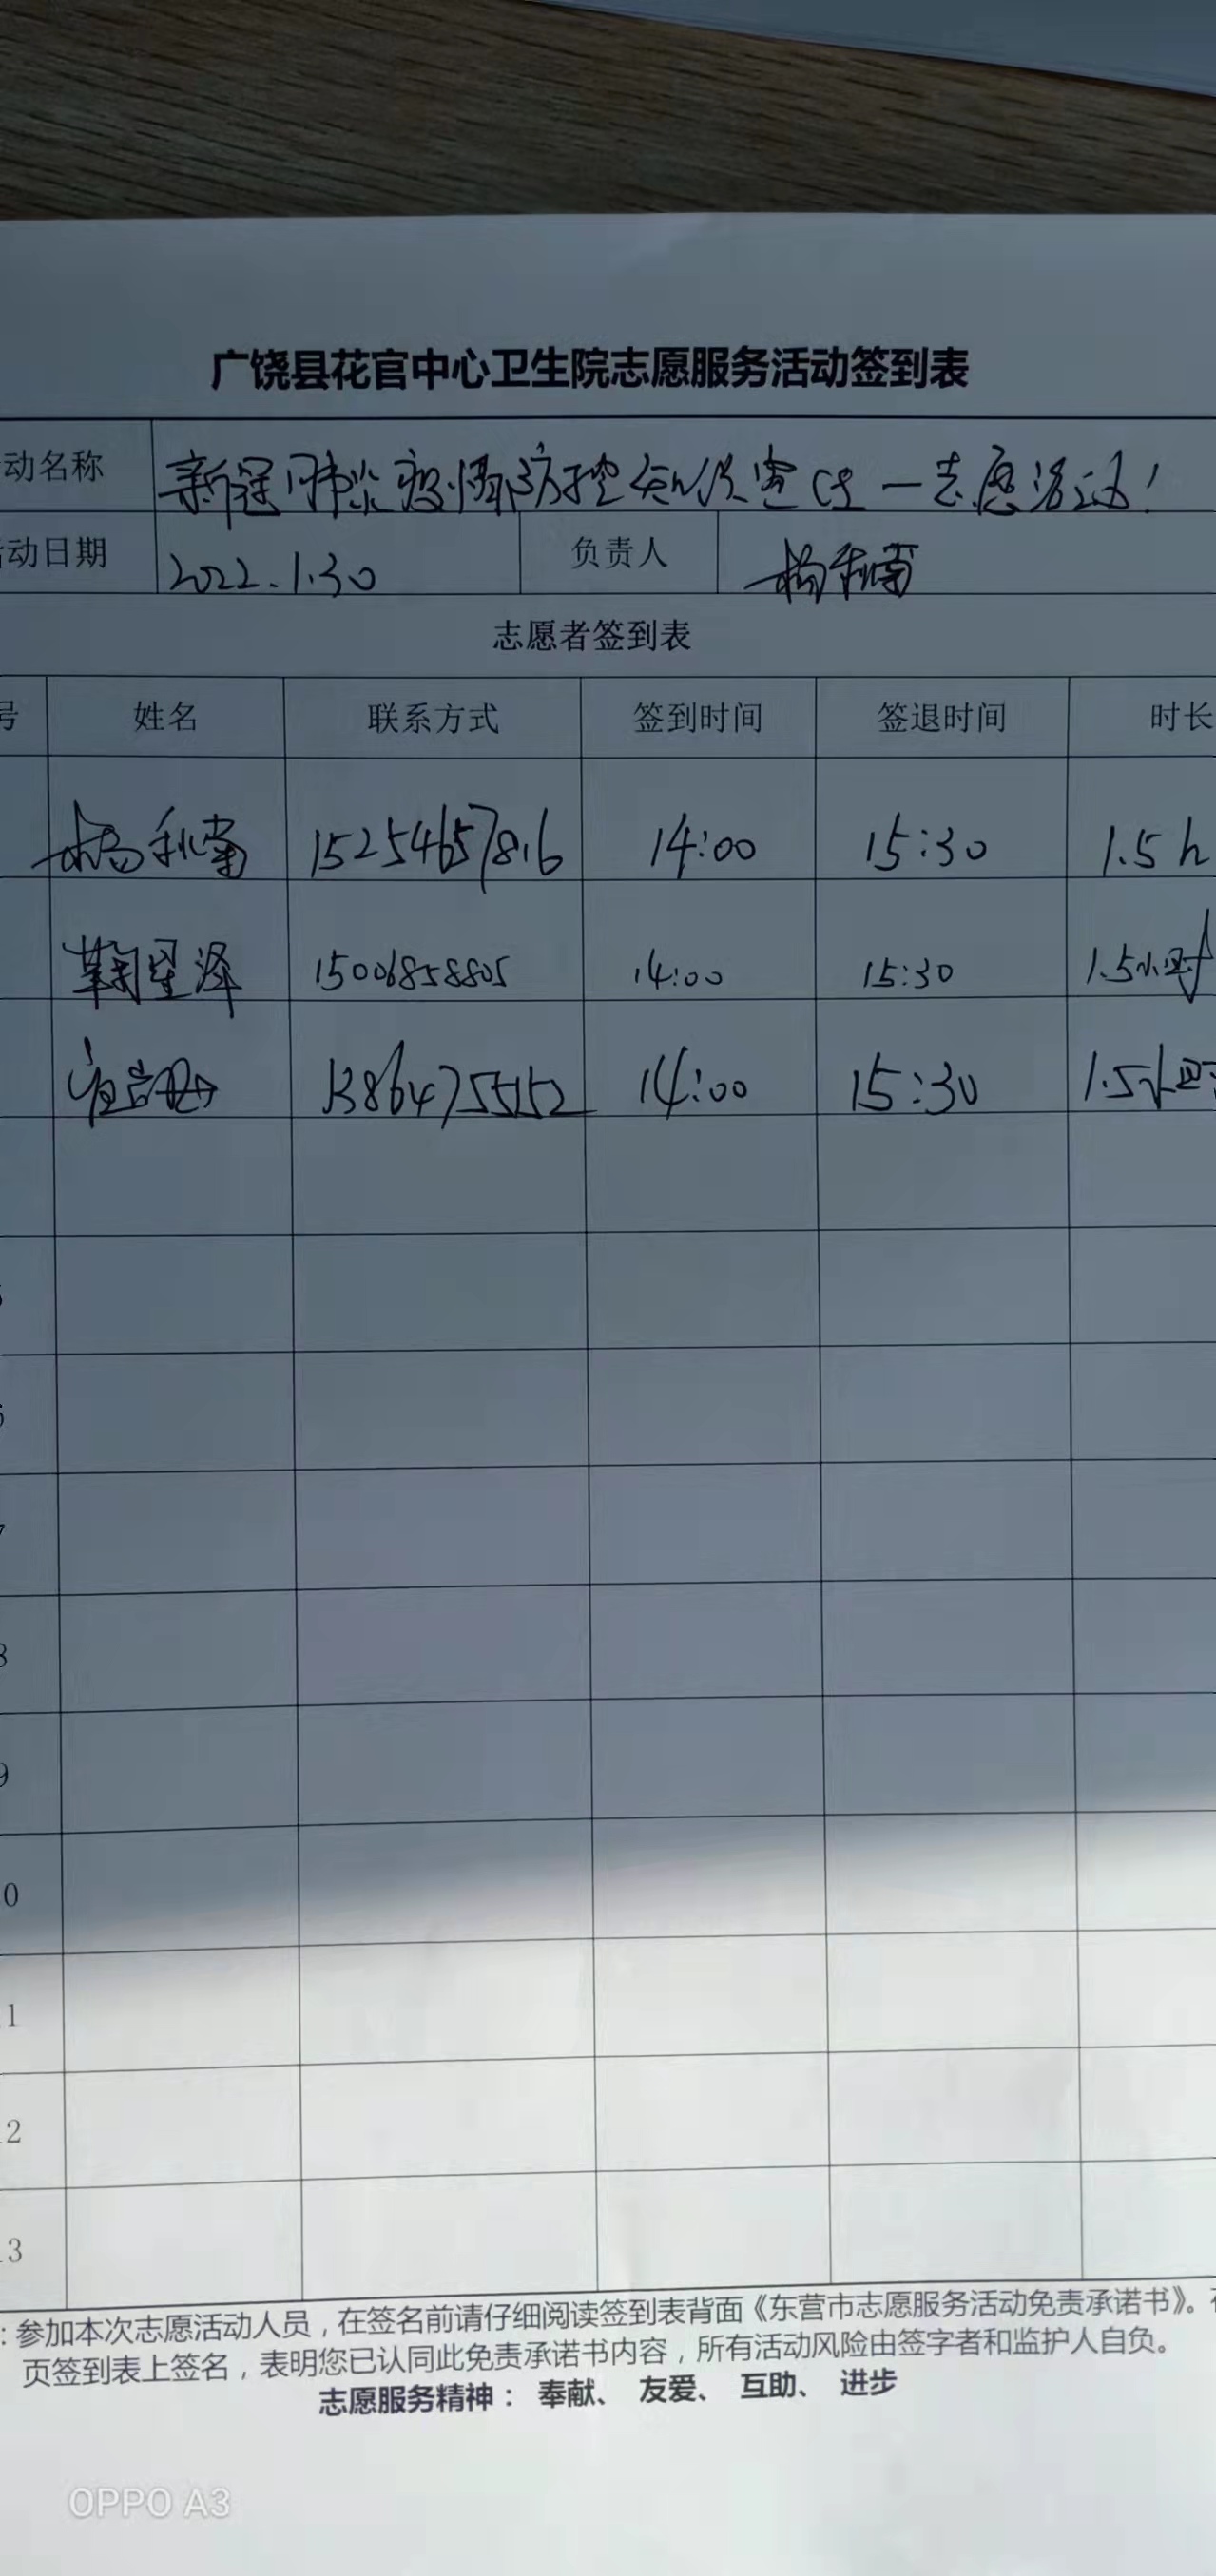 广饶县花官中心卫生院志愿服务活动签到表
动名称 新冠肺炎疫情防控知识宣传—志愿活动!
动日期 2022.1.30 负责人 杨秋南
志愿者签到表
号 姓名 联系方式 签到时间 签退时间 时长
杨秋南 15254657816 14:00 15:30 1.5h
鞠星泽 15006858805 14:00 15:30 1.5小时
13864755152 14:00 15:30 1.5小时
7
8
9
0
1
2
3
:参加本次志愿活动人员,在签名前请仔细阅读签到表背面《东营市志愿服务活动免责承诺书》。
页签到表上签名,表明您已认同此免责承诺书内容,所有活动风险由签字者和监护人自负。
志愿服务精神: 奉献、 友爱、 互助、 进步
OPPO A3